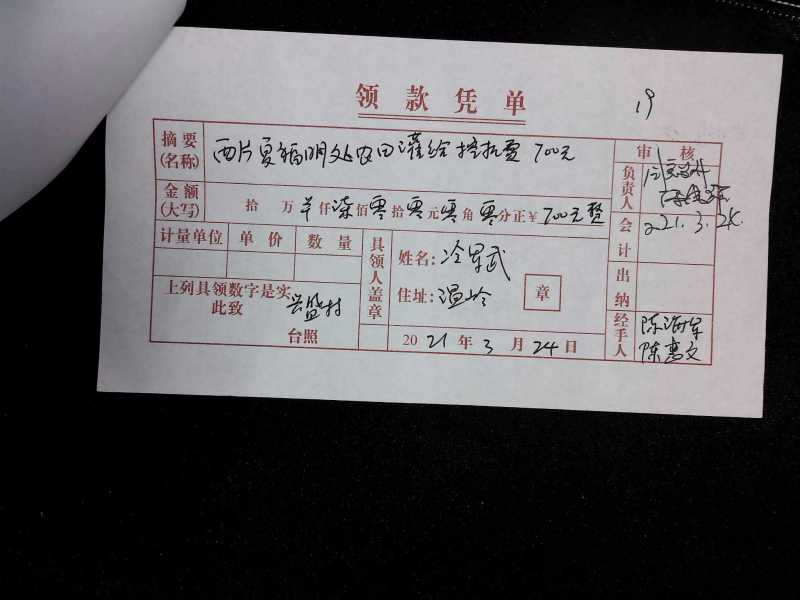 领款凭单
19
摘要(名称) 西片夏福明处农田灌给挖机费 700元
审核
负责人
金额(大写) 拾 万 仟 柒 佰 零 拾 零 元 零 角 零 分正 ¥ 700元整
会计 2021.3.24.
计量单位 单价 数量
具领人盖章
姓名: 冷军武
住址: 温岭
章
出纳
上列具领数字是实
此致
台照
2021年3月24日
经手人 陈海军
陈惠文